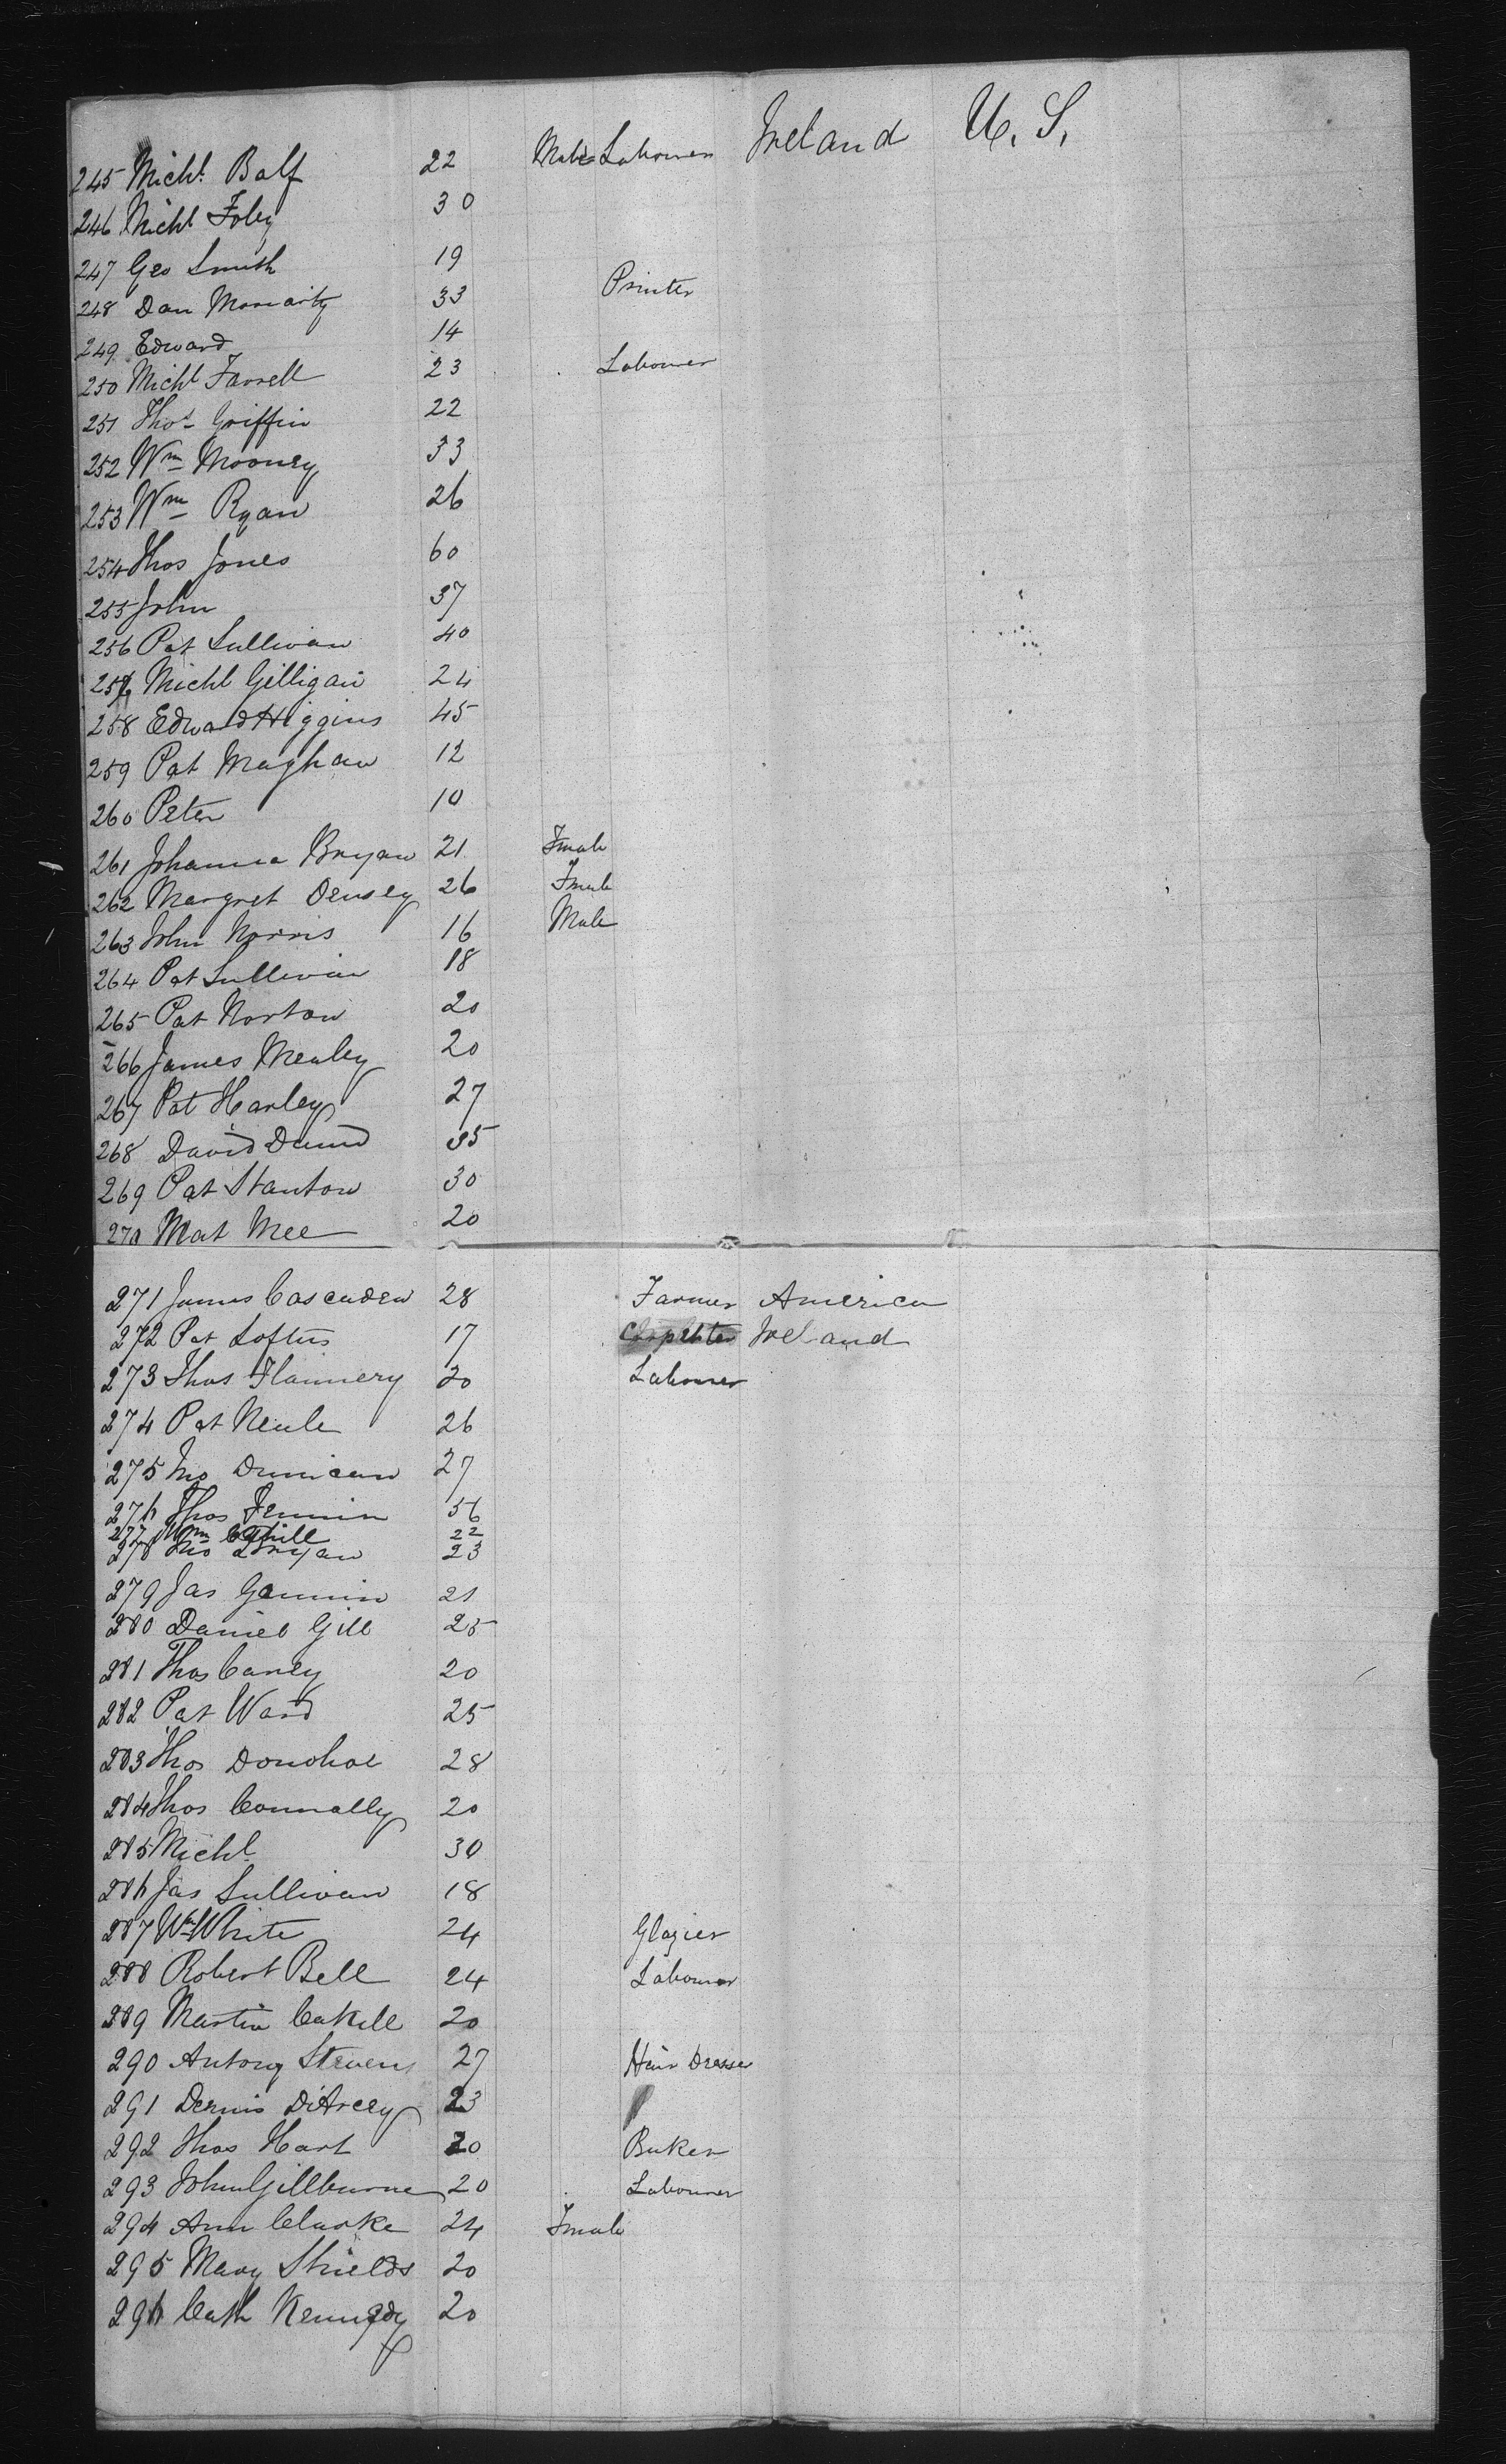 245 Michl. Balf 22 Male Labourer Ireland U. S.
246 Michl Foley 30
247 Geo Smith 19
248 Dan Moriarity 33 Printer
249 Edward 14
250 Michl Farrell 23 Labourer
251 Thos Griffin 22
252 Wm Mooney 33
253 Wm Ryan 26
254 Thos Jones 60
255 John 37
256 Pat Sullivan 40
257 Michl Gilligan 24
258 Edward Higgins 45
259 Pat Maghan 12
260 Peter 10
261 Johanna Bryan 21 Fmale
262 Margret Densey 26 Fmale
263 John Norris 16 Male
264 Pat Sullivan 18
265 Pat Norton 20
266 James Mealey 20
267 Pat Harley 27
268 David 35
269 Pat Stanton 30
270 Mat Mee 20
271 James Cascaden 28 Farmer America
272 Pat Loftus 17 Carpenter Ireland
273 Thos Flannery 20 Labourer
274 Pat Neale 26
275 Jno Dunican 27
276 Thos Fennin 56
277 Wm Cahill 22
278 Jno Bryan 23
279 Jas Gannin 21
280 Daniel Gill 25
281 Thos Carey 20
282 Pat Ward 25
283 Thos Donohoe 28
284 Thos Connally 20
285 Michl 30
286 Jas Sullivan 18
287 Wm White 24 Glazier
288 Robert Bell 24 Labourer
289 Martin Cahill 20
290 Antony Stevens 27 Hair Dresser
291 Dennis D'Arcey 23
292 Thos Hart 20 Baker
293 John Gillburne 20 Labourer
294 Ann Clarke 24 Fmale
295 Mary Shields 20
296 Cath Kennedy 20